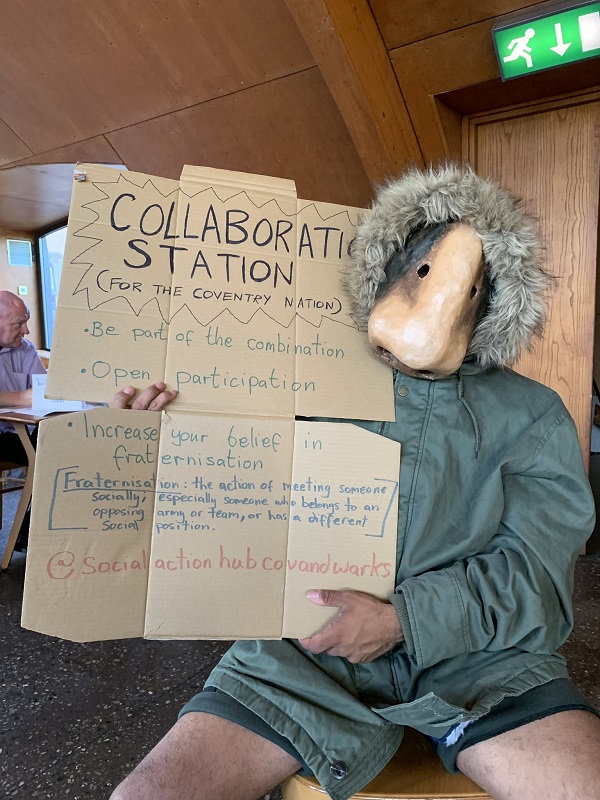 COLLABORATI
STATION
(FOR THE COVENTRY NATION)
•Be part of the combination
•Open participation
•Increase your belief in
fraternisation
[Fraternisation: the action of meeting someone
socially, especially someone who belongs to an
opposing army or team, or has a different
social position.]
@socialactionhubcovandwarks